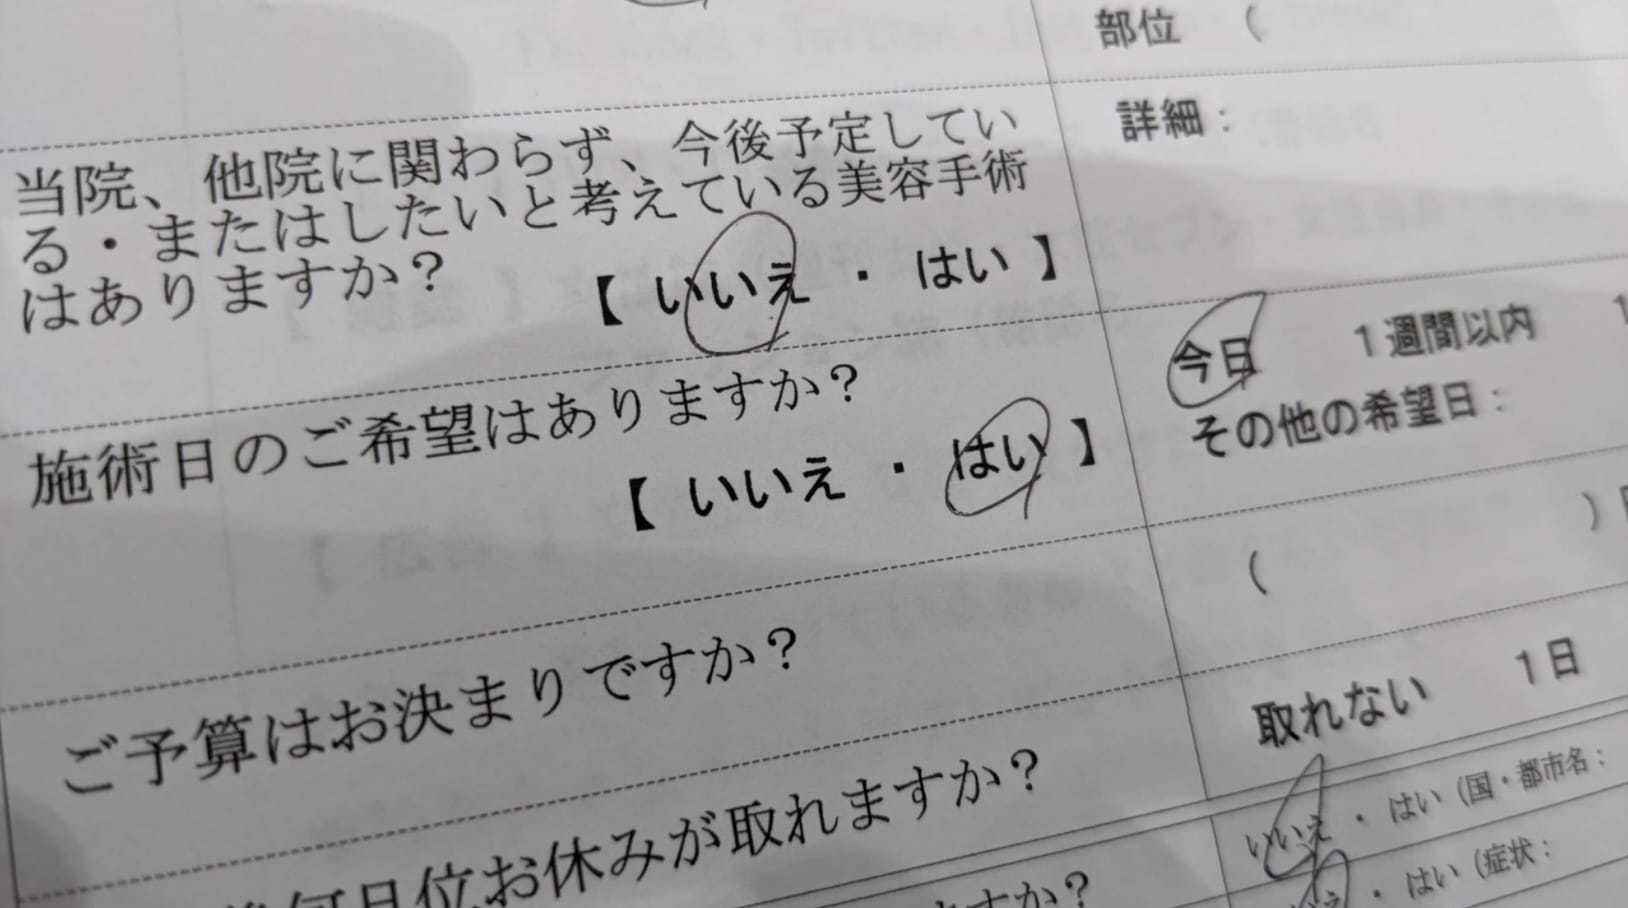 部位 (
当院、他院に関わらず、今後予定してい
る・またはしたいと考えている美容手術
はありますか？
【 いいえ ・ はい 】
詳細：
施術日のご希望はありますか？
【 いいえ ・ はい 】
今日 1週間以内
その他の希望日：
ご予算はお決まりですか？
( )
何日位お休みが取れますか？
取れない 1日
いいえ ・ はい（国・都市名：
ますか？
いえ ・ はい（症状：